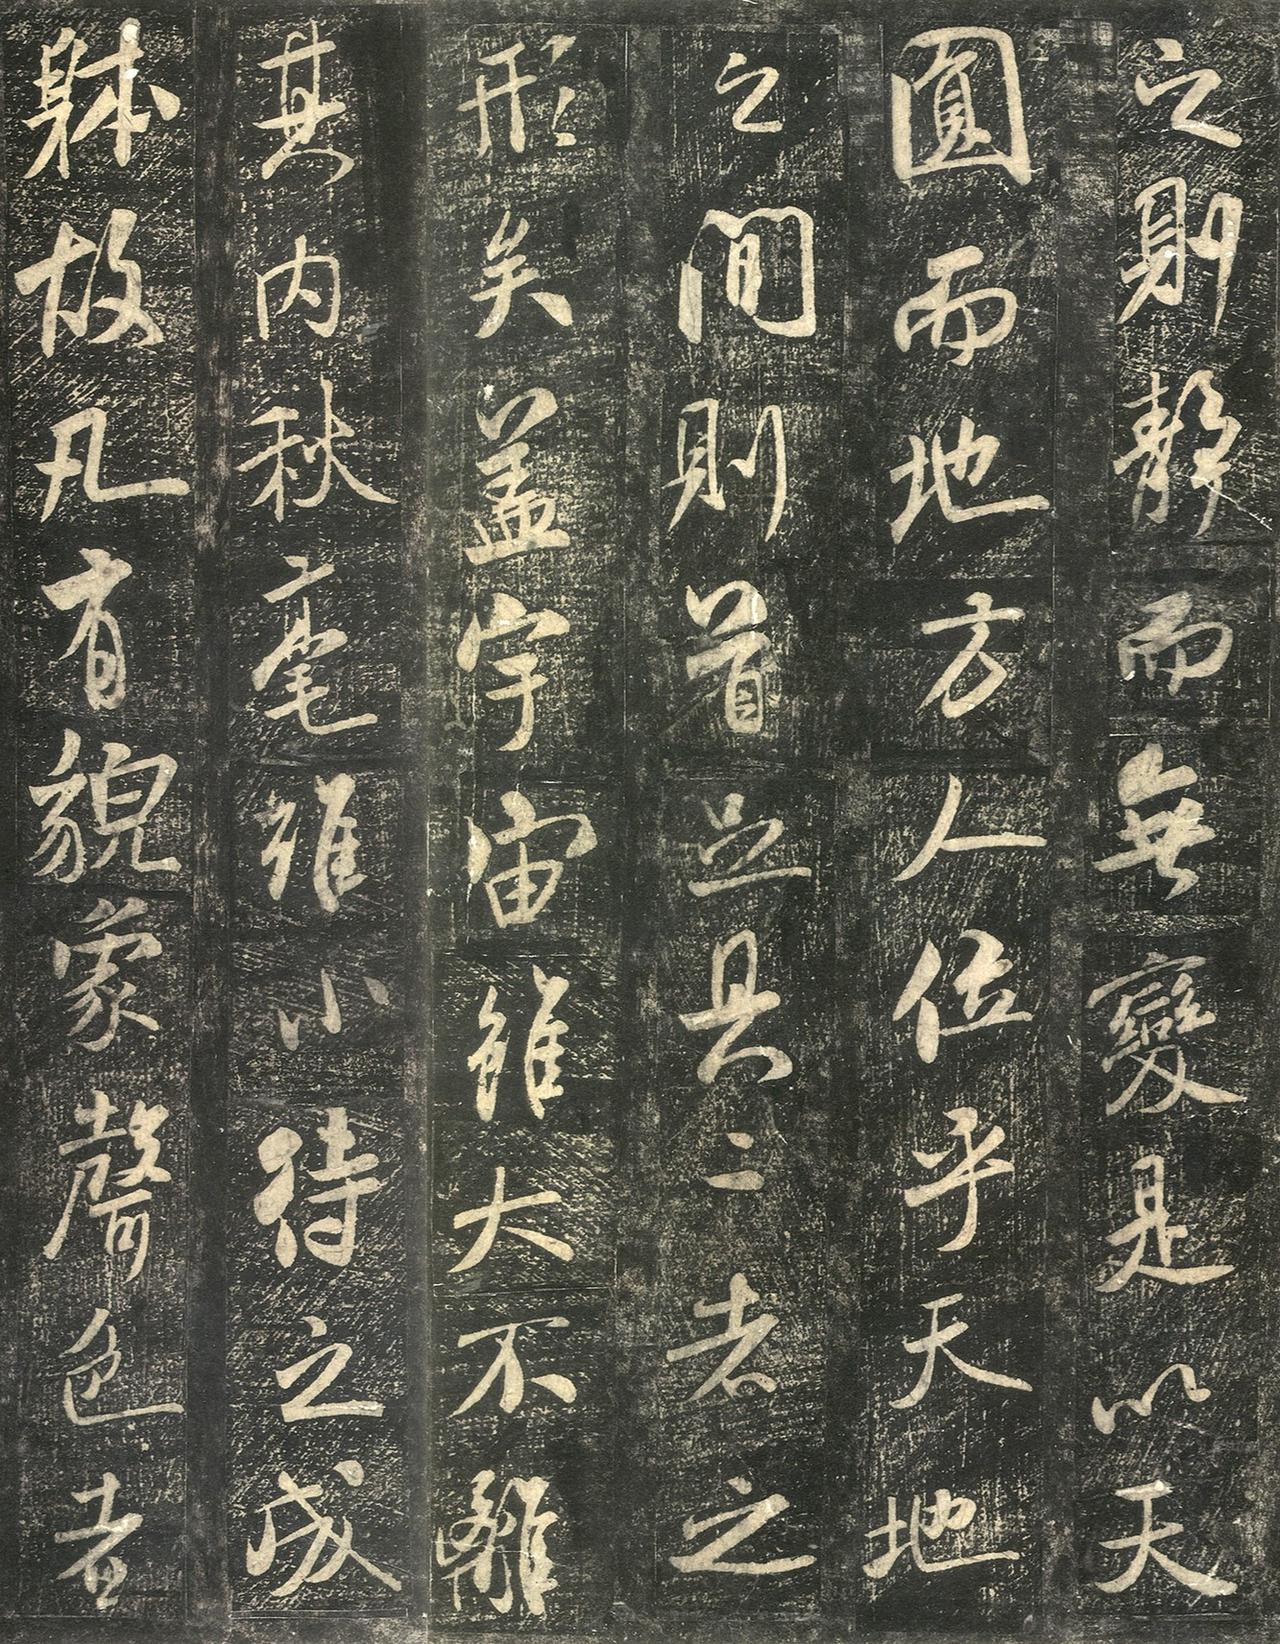 之則靜而無變是以天
圓而地方人位乎天地
之間則首足具二者之
形矣蓋宇宙雖大不離
其內秋毫雖小待之成
躰故凡有貌象聲色者